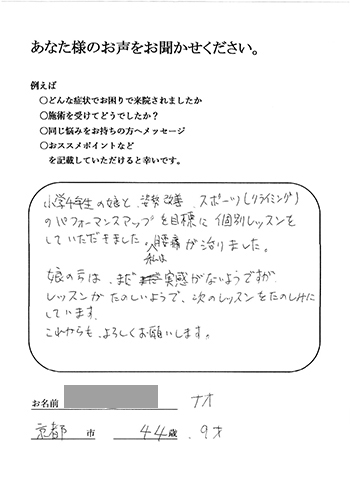 あなた様のお声をお聞かせください。
例えば
○どんな症状でお困りで来院されましたか
○施術を受けてどうでしたか？
○同じ悩みをお持ちの方へメッセージ
○おススメポイントなど
を記載していただけると幸いです。
小学4年生の娘と、姿勢改善、スポーツ(クライミング)
のパフォーマンスアップを目標に個別レッスンを
していただきました。私は腰痛が治りました。
娘の方は、まだ実感がないようですが
レッスンがたのしいようで、次のレッスンをたのしみに
しています。
これからも、よろしくお願いします。
お名前 ナオ
京都 市 44歳 . 9才